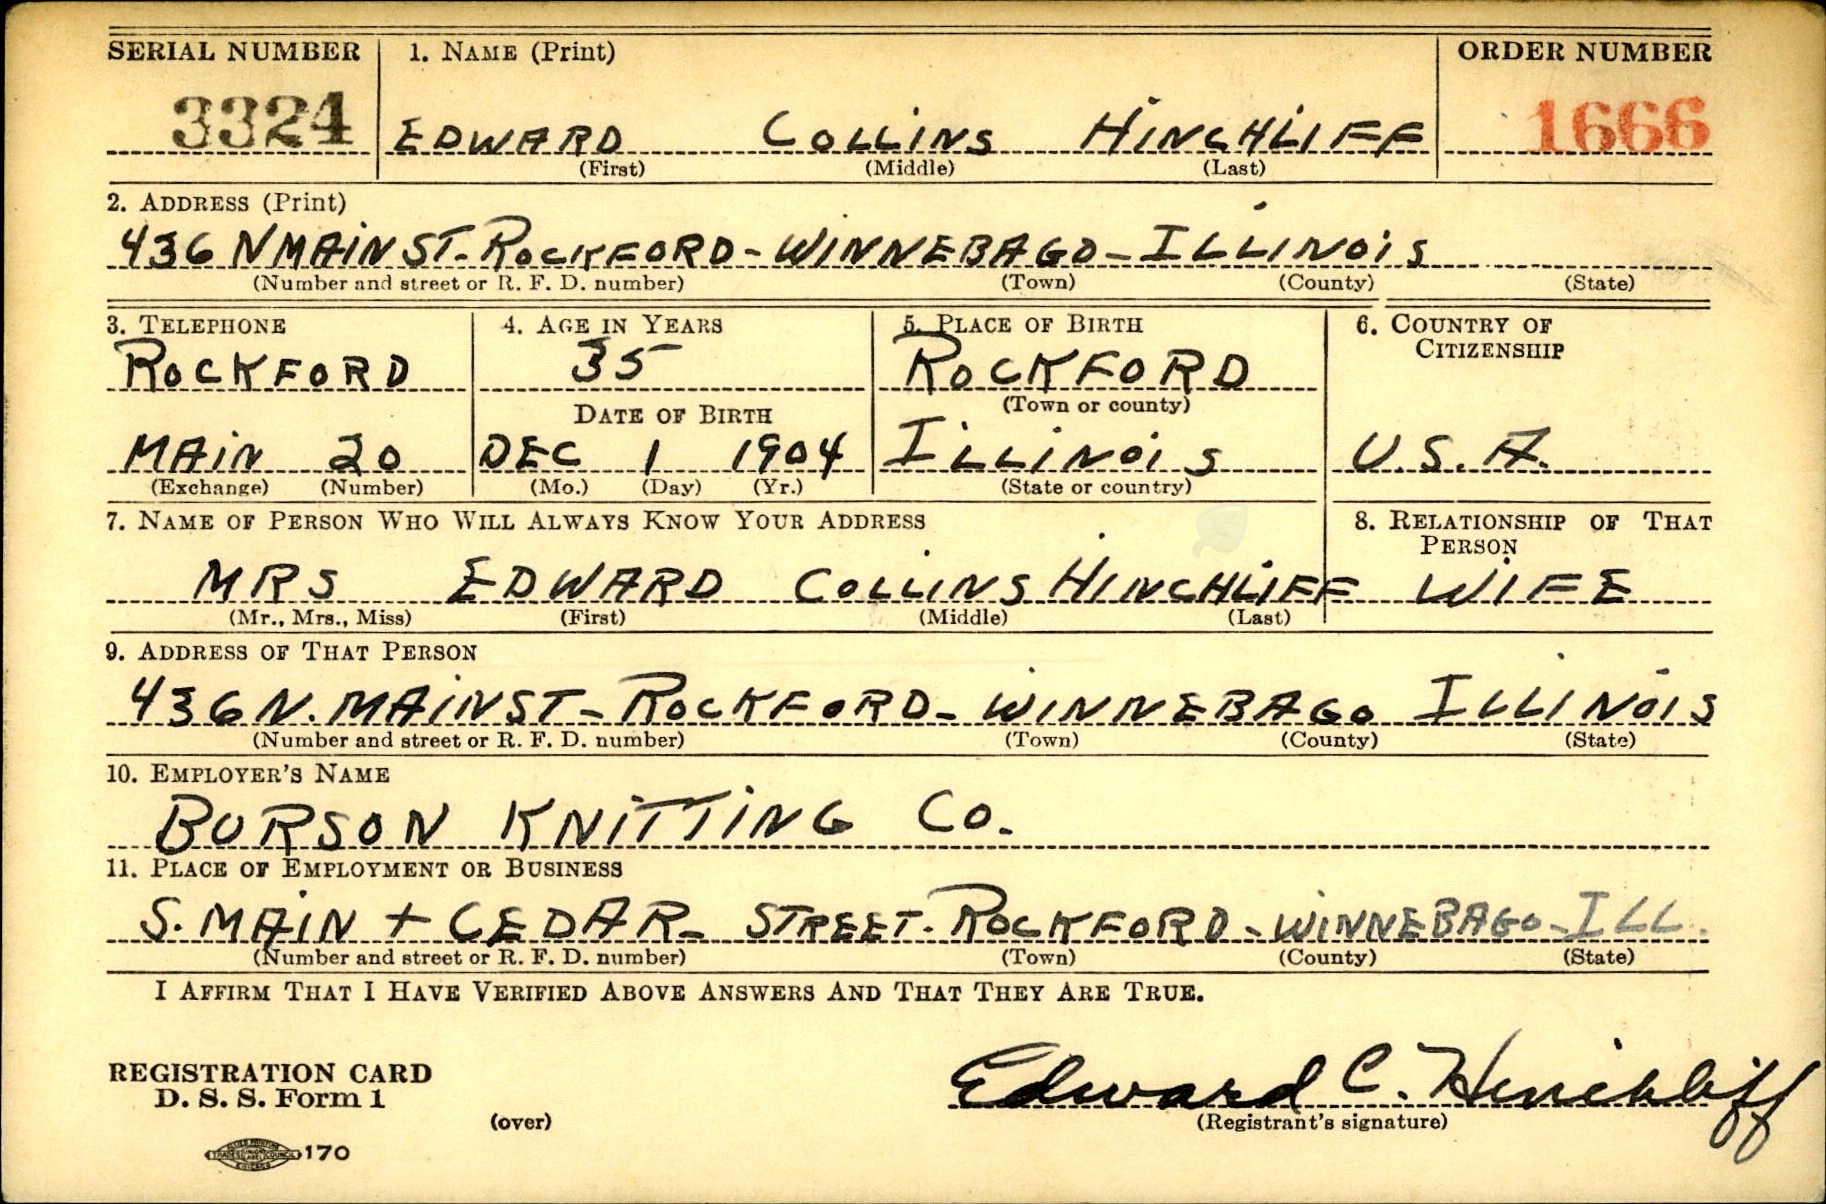 SERIAL NUMBER 1. NAME (Print) ORDER NUMBER
3324 EDWARD COLLINS HINCHLIFF 1666
(First) (Middle) (Last)
2. ADDRESS (Print)
436 N MAIN ST. ROCKFORD - WINNEBAGO - ILLINOIS
(Number and street or R. F. D. number) (Town) (County) (State)
3. TELEPHONE 4. AGE IN YEARS 5. PLACE OF BIRTH 6. COUNTRY OF
CITIZENSHIP
ROCKFORD 35 ROCKFORD
DATE OF BIRTH (Town or county)
MAIN 20 DEC 1 1904 ILLINOIS U.S.A.
(Exchange) (Number) (Mo.) (Day) (Yr.) (State or country)
7. NAME OF PERSON WHO WILL ALWAYS KNOW YOUR ADDRESS 8. RELATIONSHIP OF THAT
PERSON
MRS EDWARD COLLINS HINCHLIFF WIFE
(Mr., Mrs., Miss) (First) (Middle) (Last)
9. ADDRESS OF THAT PERSON
436 N. MAIN ST - ROCKFORD - WINNEBAGO ILLINOIS
(Number and street or R. F. D. number) (Town) (County) (State)
10. EMPLOYER'S NAME
BURSON KNITTING CO.
11. PLACE OF EMPLOYMENT OR BUSINESS
S. MAIN + CEDAR - STREET. ROCKFORD - WINNEBAGO - ILL.
(Number and street or R. F. D. number) (Town) (County) (State)
I AFFIRM THAT I HAVE VERIFIED ABOVE ANSWERS AND THAT THEY ARE TRUE.
REGISTRATION CARD
D. S. S. Form 1
Edward C. Hinchliff
(over) (Registrant's signature)
170